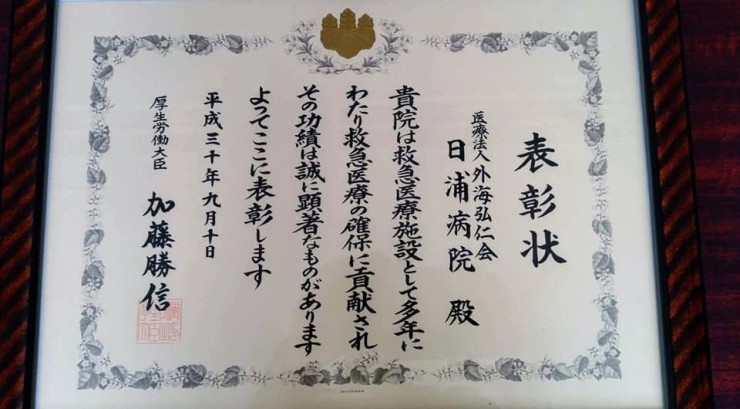 表彰状
医療法人外海弘仁会
日浦病院 殿
貴院は救急医療施設として多年に
わたり救急医療の確保に貢献され
その功績は誠に顕著なものがあります
よってここに表彰します
平成三十年九月十日
厚生労働大臣 加藤勝信